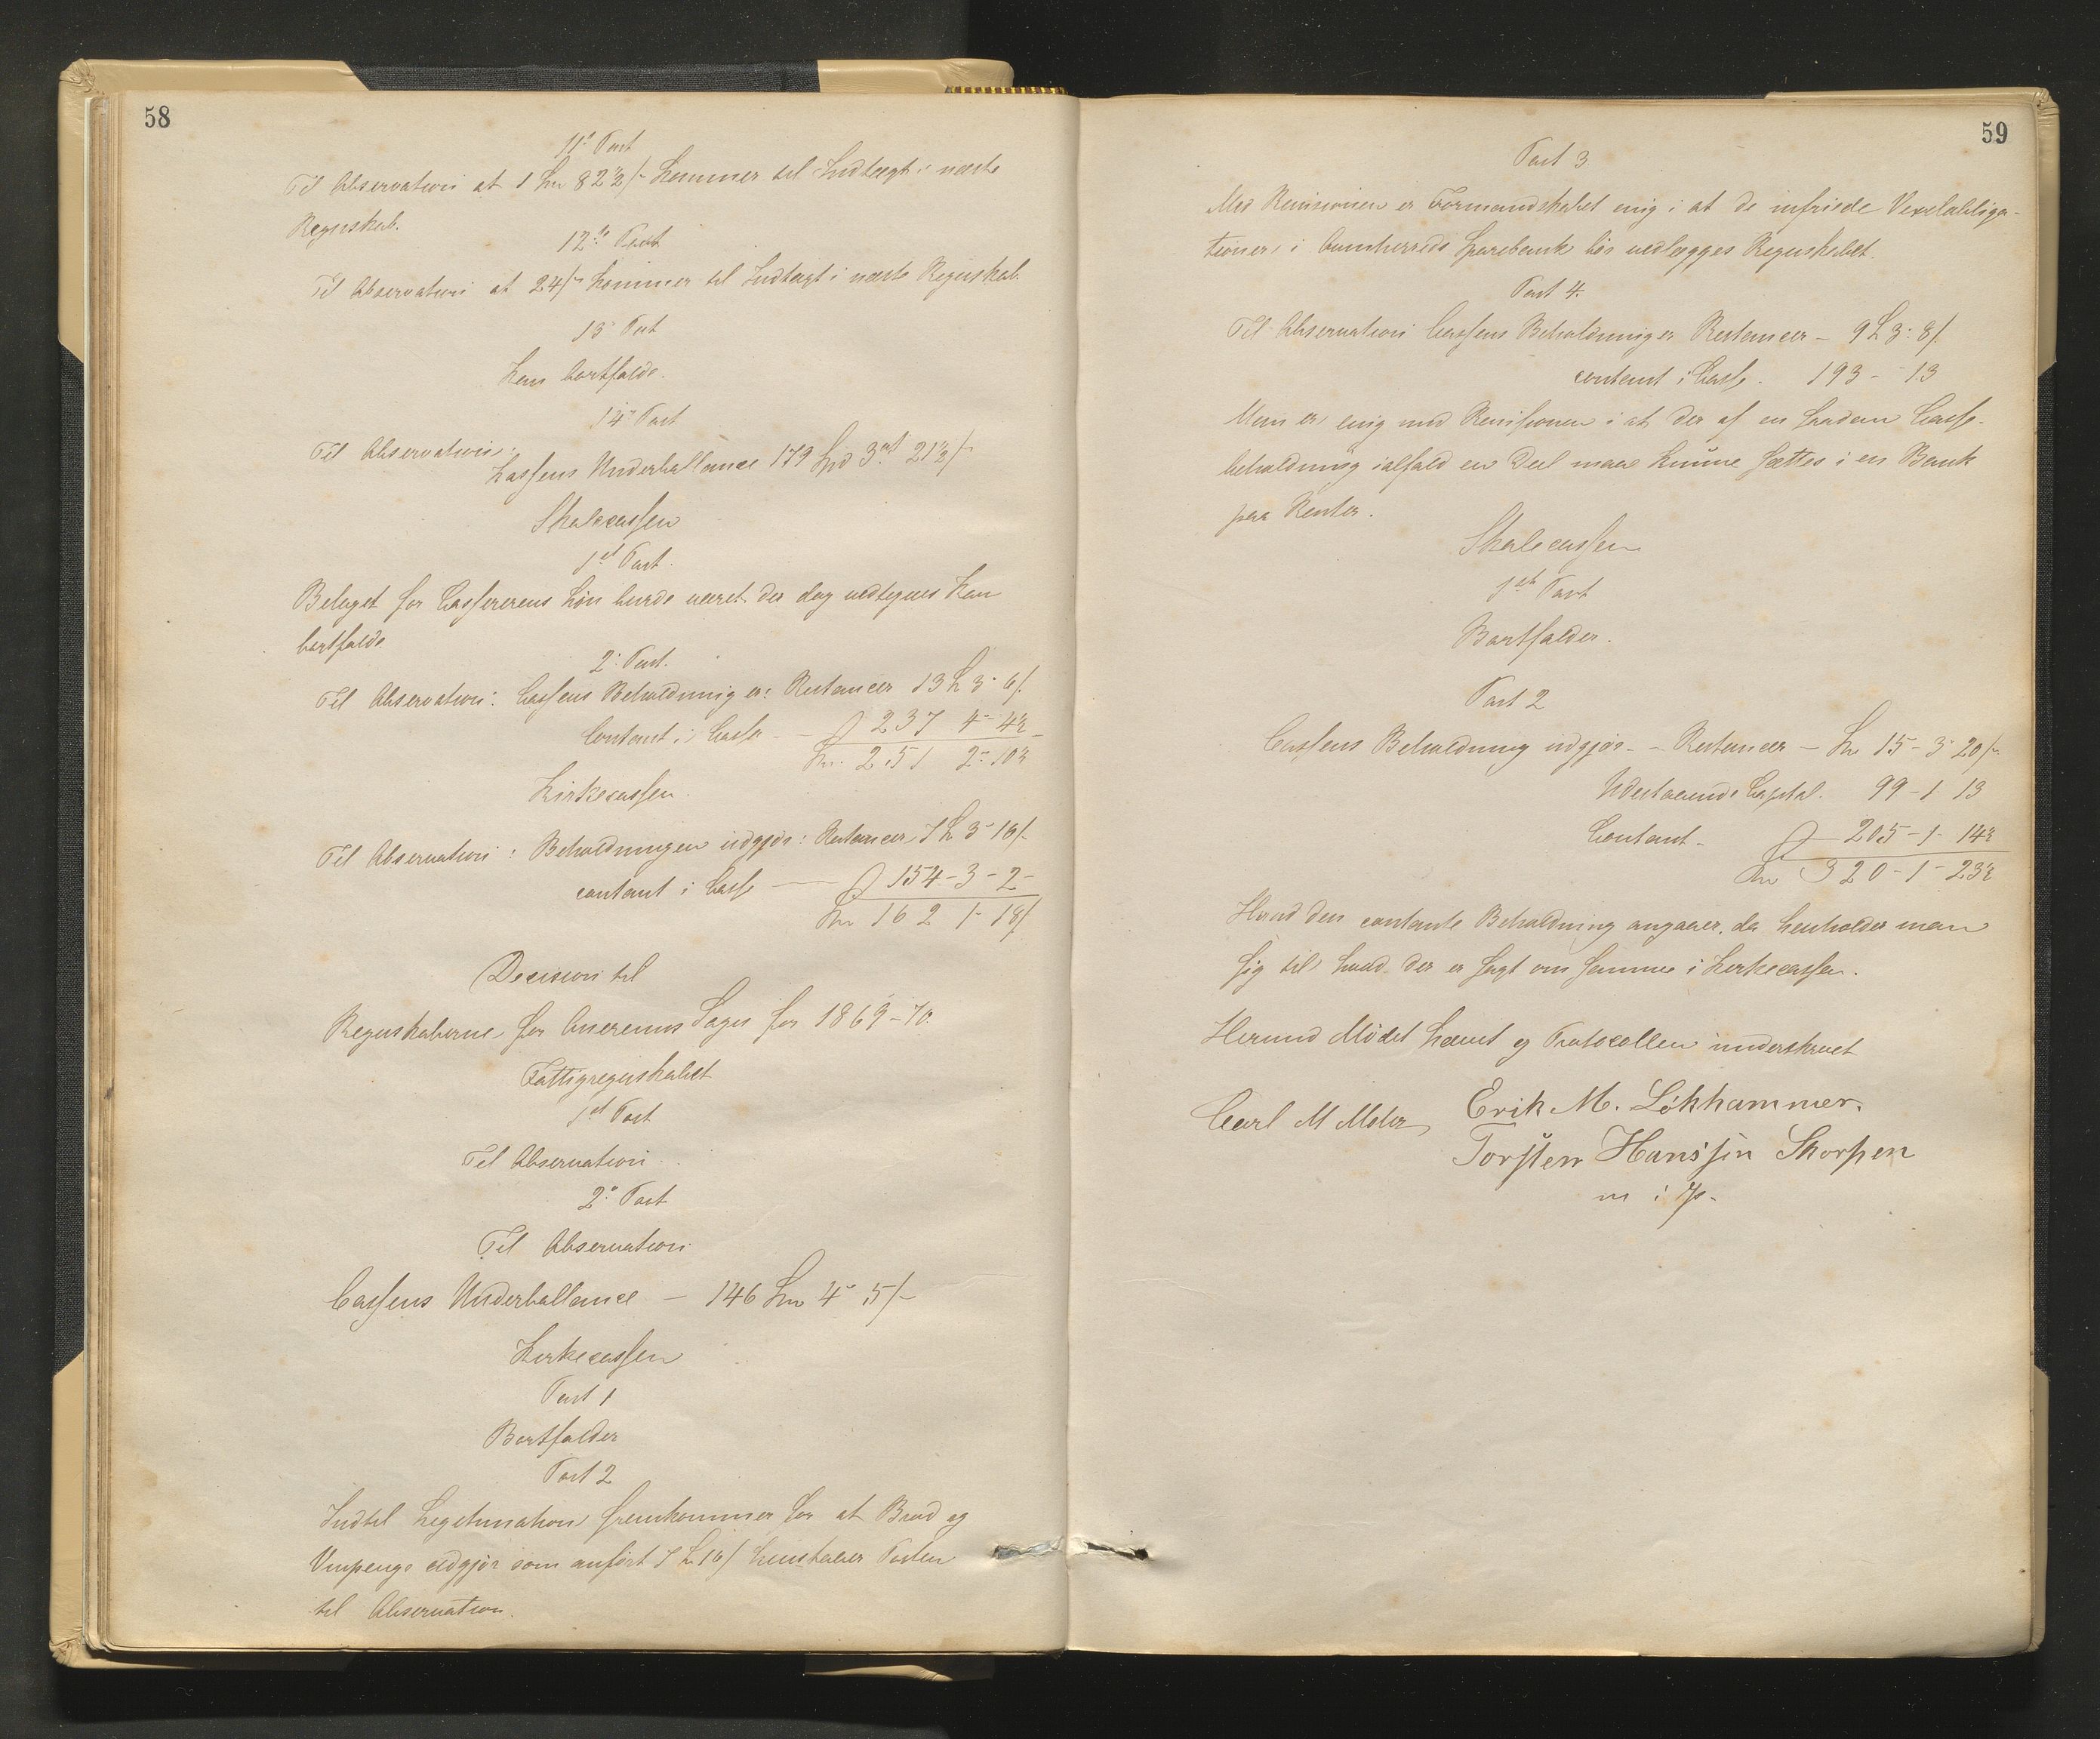 58
11te Post
Til Observation at 1 Spd 82½ ſ kommer til Indtægt i næste
Regnskab.
12te Post
Til Observation at 24 ſ kommer til Indtægt i næste Regnskab.
13 Post
Kan bortfalde.
14 Post
Til Observation.
Kassens Underballance 179 Spd 3 ort 21½ ſ
Skolecassen
1ste Post.
Belaget for Cassererens Løn burde været da dog vedtegnes kan
bortfalde
2. Post.
Til Observation: Cassens Beholdning er: Restancer 13 S 3 - 6 ſ.
Contant i Casse - 237 4 - 4½
Spd. 251 2 - 10½
Kirkecassen.
Til Observation: Beholdningen udgjør: Restancer 7 S 3 - 16 ſ.
contant i Casse - 154 - 3 - 2 -
Spd 162 1 - 18 ſ
Decision til
Regnskaberne for Qverenes Sogn for 1869-70.
Fattigregnskabet
1ste Post
Til Observation.
2. Post
Til Observation
Cassens Underballance - 146 Spd 4 - 5 ſ
Kirkecassen
Post 1
Bortfalder
Post 2
Indtil Legetimation fremkommer for at Brød og
Vinpenge udgjør som anført 7 S 16 ſ henstaaer Posten
til Observation.
59
Post 3
Med Revisionen er Formandskabet enig i at de infriede Vexelobliga-
tioner i Quinherreds Sparebank bør vedlægges Regnskabet.
Post 4.
Til Observation Cassens Beholdning er Restancer - 9 S 3 - 8 ſ.
contant i Casse. 193 - - 13
Man er enig med Revisionen i at der af en saadan Casse-
beholdning ialfald en Deel maae kunne sættes i en Bank
paa Renter.
Skolecassen
1ste Post
Bortfalder.
Post 2
Cassens Beholdning udgjør - - Restancer - Spd 15 - 3 20 ſ
Udestaaende Capital. 99 - 1 13
Contant - 205 - 1 - 14½
Spd 320 - 1 - 23½
Hvad den contante Beholdning angaaer, da henholder man
sig til hvad der er sagt om samme i Kirkecassen.
Hermed Mødet hævet og Protocollen underskrevet
Carl M Møler Erik M. Løkhammer.
Torsten Hanssøn Skorpen
m i P.